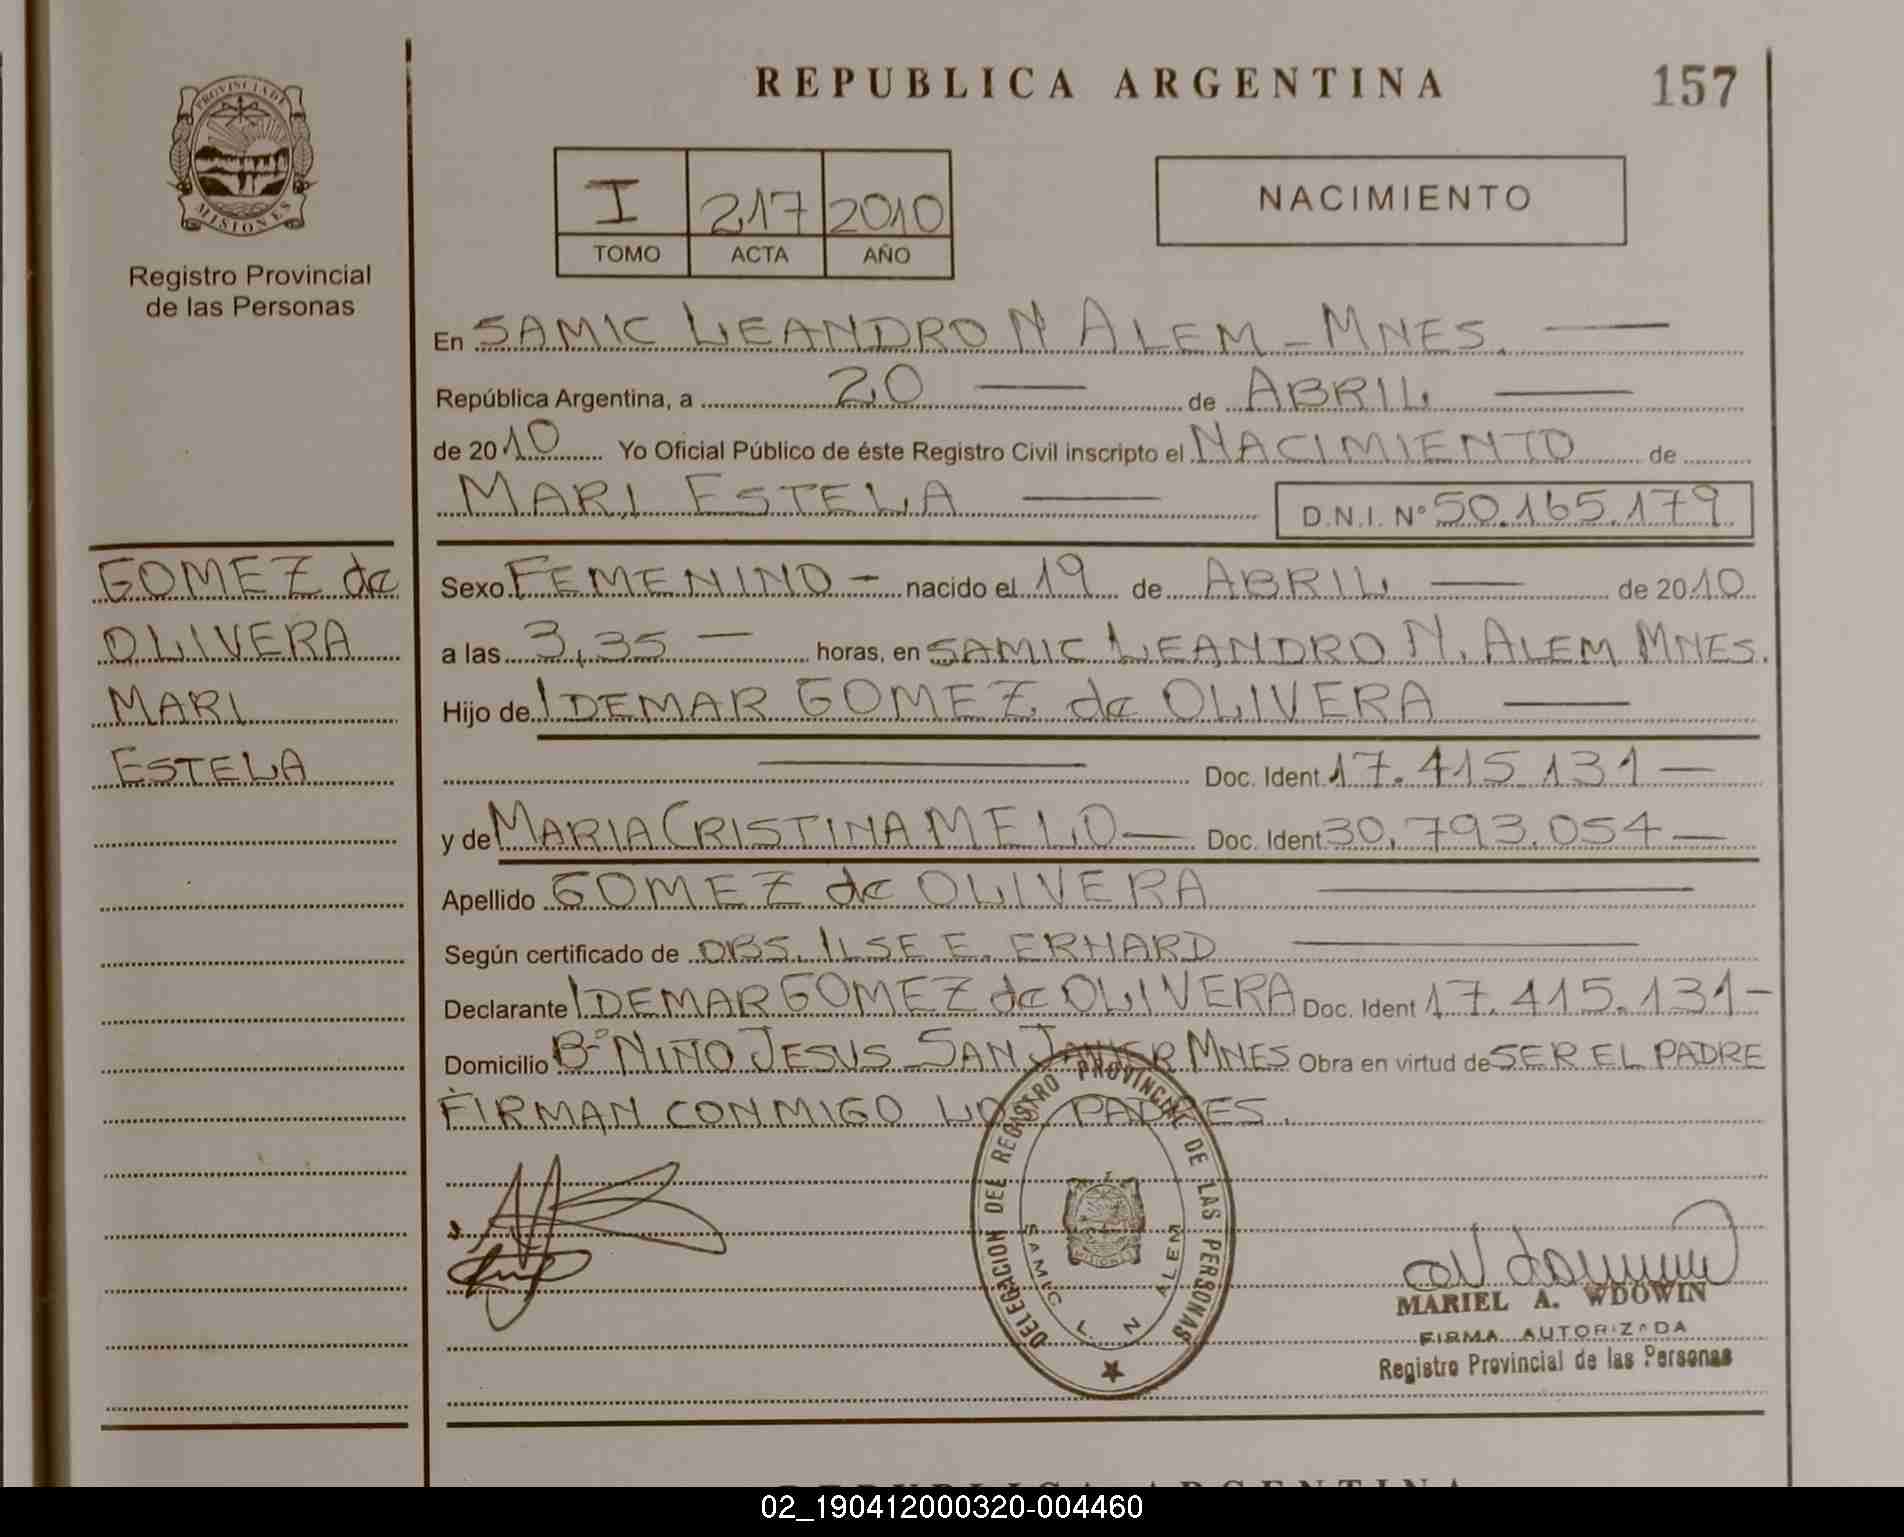 PROVINCIA DE
MISIONES
Registro Provincial
de las Personas
GOMEZ de
OLIVERA
MARI
ESTELA
REPUBLICA ARGENTINA
157
I 217 2010
TOMO ACTA AÑO
NACIMIENTO
En SAMIC LEANDRO N ALEM - MNES.
República Argentina, a 20 de ABRIL
de 2010 Yo Oficial Público de éste Registro Civil inscripto el NACIMIENTO de
MARI ESTELA D.N.I. N° 50.165.179
Sexo FEMENINO - nacido el 19 de ABRIL de 2010
a las 3,35 horas, en SAMIC LEANDRO N. ALEM MNES.
Hijo de IDEMAR GOMEZ de OLIVERA
Doc. Ident 17.415.131
y de MARIA CRISTINA MELO Doc. Ident 30.793.054
Apellido GOMEZ de OLIVERA
Según certificado de OBS. ILSE E. ERHARD
Declarante IDEMAR GOMEZ de OLIVERA Doc. Ident 17.415.131
Domicilio B° NIÑO JESUS SAN JAVIER MNES Obra en virtud de SER EL PADRE
FIRMAN CONMIGO LOS PADRES.
DELEGACION DEL REGISTRO PROVINCIAL DE LAS PERSONAS
SAMIC L. N ALEM
MISIONES
MARIEL A. WDOWIN
FIRMA AUTORIZADA
Registro Provincial de las Personas
REPUBLICA ARGENTINA
02_190412000320-004460